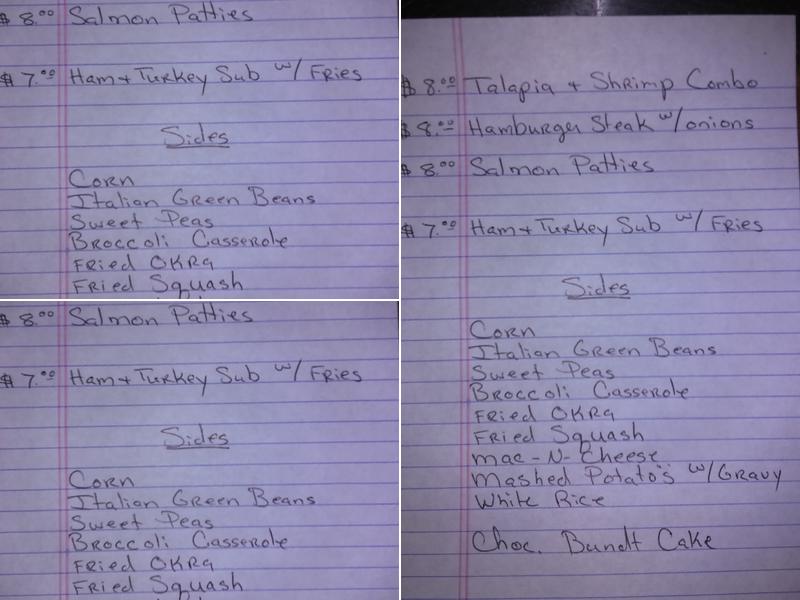 $ 8.00 Salmon Patties
$ 7.00 Ham + Turkey Sub w/ Fries
Sides
Corn
Italian Green Beans
Sweet Peas
Broccoli Casserole
Fried OKRA
Fried Squash
$ 8.00 Salmon Patties
$ 7.00 Ham + Turkey Sub w/ Fries
Sides
Corn
Italian Green Beans
Sweet Peas
Broccoli Casserole
Fried OKRA
Fried Squash
$ 8.00 Talapia + Shrimp Combo
$ 8.00 Hamburger Steak w/onions
$ 8.00 Salmon Patties
$ 7.00 Ham + Turkey Sub w/ Fries
Sides
Corn
Italian Green Beans
Sweet Peas
Broccoli Casserole
Fried OKRA
Fried Squash
Mac-N-Cheese
Mashed Potato's w/Gravy
White Rice
Choc. Bundt Cake